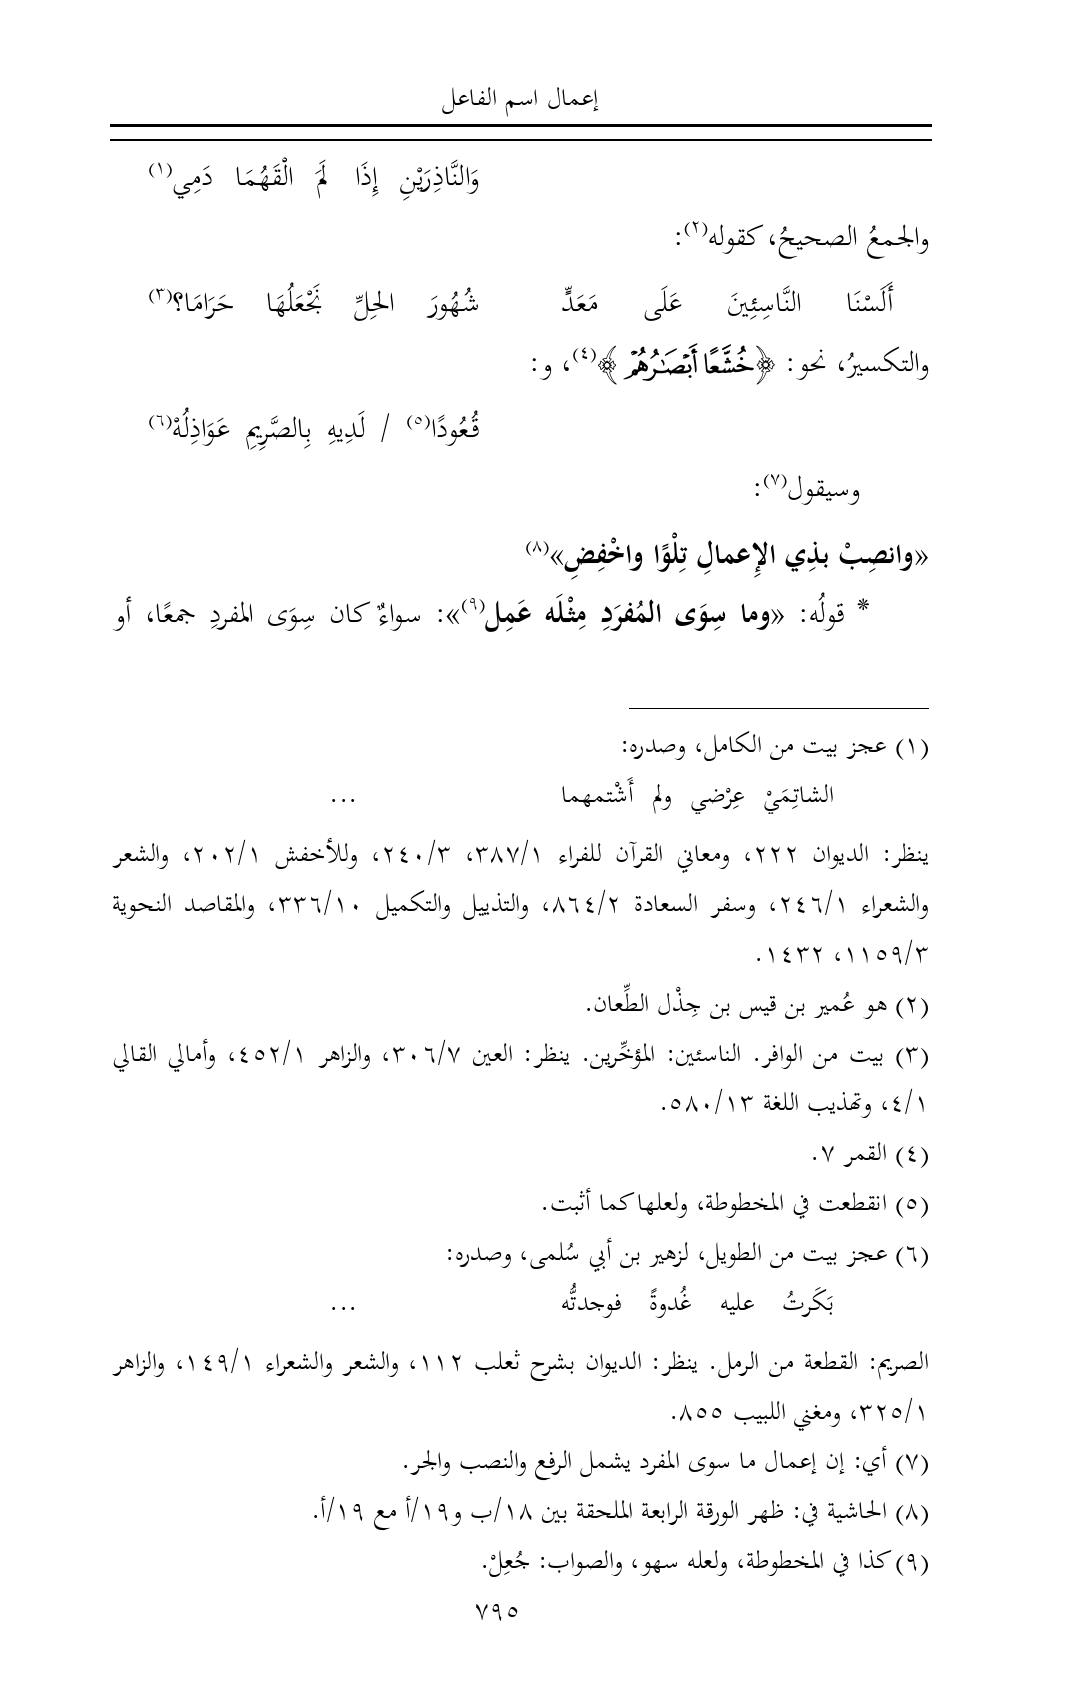 إعمال اسم الفاعل
وَالنَّاذِرَيْنِ إِذَا لَمَ الْقَهُمَا دَمِي(١)
والجمعُ الصحيحُ، كقوله(٢):
أَلَسْنَا النَّاسِئِينَ عَلَى مَعَدٍّ شُهُورَ الحِلِّ نَجْعَلُهَا حَرَامَا؟(٣)
والتكسيرُ، نحو: ﴿خُشَّعًا أَبْصَٰرُهُمْ﴾(٤)، و:
قُعُودًا(٥) / لَدِيهِ بِالصَّرِيمِ عَوَاذِلُهْ(٦)
وسيقول(٧):
«وانصِبْ بذِي الإِعمالِ تِلْوًا واخْفِضِ»(٨)
* قولُه: «وما سِوَى المُفرَدِ مِثْلَه عَمِل(٩)»: سواءٌ كان سِوَى المفردِ جمعًا، أو
(١) عجز بيت من الكامل، وصدره:
الشاتِمَيْ عِرْضي ولم أَشْتمهما ...
ينظر: الديوان ٢٢٢، ومعاني القرآن للفراء ٣٨٧/١، ٢٤٠/٣، وللأخفش ٢٠٢/١، والشعر
والشعراء ٢٤٦/١، وسفر السعادة ٨٦٤/٢، والتذييل والتكميل ٣٣٦/١٠، والمقاصد النحوية
١١٥٩/٣، ١٤٣٢.
(٢) هو عُمير بن قيس بن جِذْل الطِّعان.
(٣) بيت من الوافر. الناسئين: المؤخِّرين. ينظر: العين ٣٠٦/٧، والزاهر ٤٥٢/١، وأمالي القالي
٤/١، وتهذيب اللغة ٥٨٠/١٣.
(٤) القمر ٧.
(٥) انقطعت في المخطوطة، ولعلها كما أثبت.
(٦) عجز بيت من الطويل، لزهير بن أبي سُلمى، وصدره:
بَكَرتُ عليه غُدوةً فوجدتُّه ...
الصريم: القطعة من الرمل. ينظر: الديوان بشرح ثعلب ١١٢، والشعر والشعراء ١٤٩/١، والزاهر
٣٢٥/١، ومغني اللبيب ٨٥٥.
(٧) أي: إن إعمال ما سوى المفرد يشمل الرفع والنصب والجر.
(٨) الحاشية في: ظهر الورقة الرابعة الملحقة بين ١٨/ب و١٩/أ مع ١٩/أ.
(٩) كذا في المخطوطة، ولعله سهو، والصواب: جُعِلْ.
٧٩٥